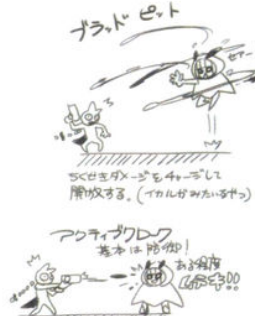 ブラッド ピット
ちくせきダメージをチャージして
開放する。(イカルガみたいなやつ)
アクティブクローク
基本は防御!
ある程度
ムテキ!!